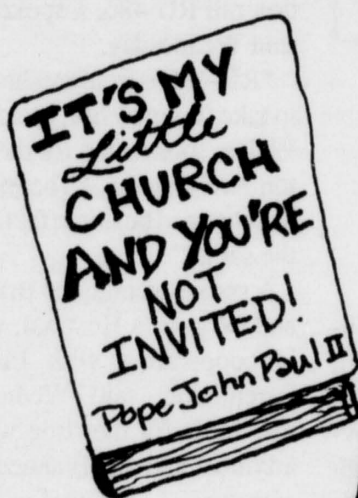 IT'S MY
Little
CHURCH
AND YOU'RE
NOT
INVITED!
Pope John Paul II